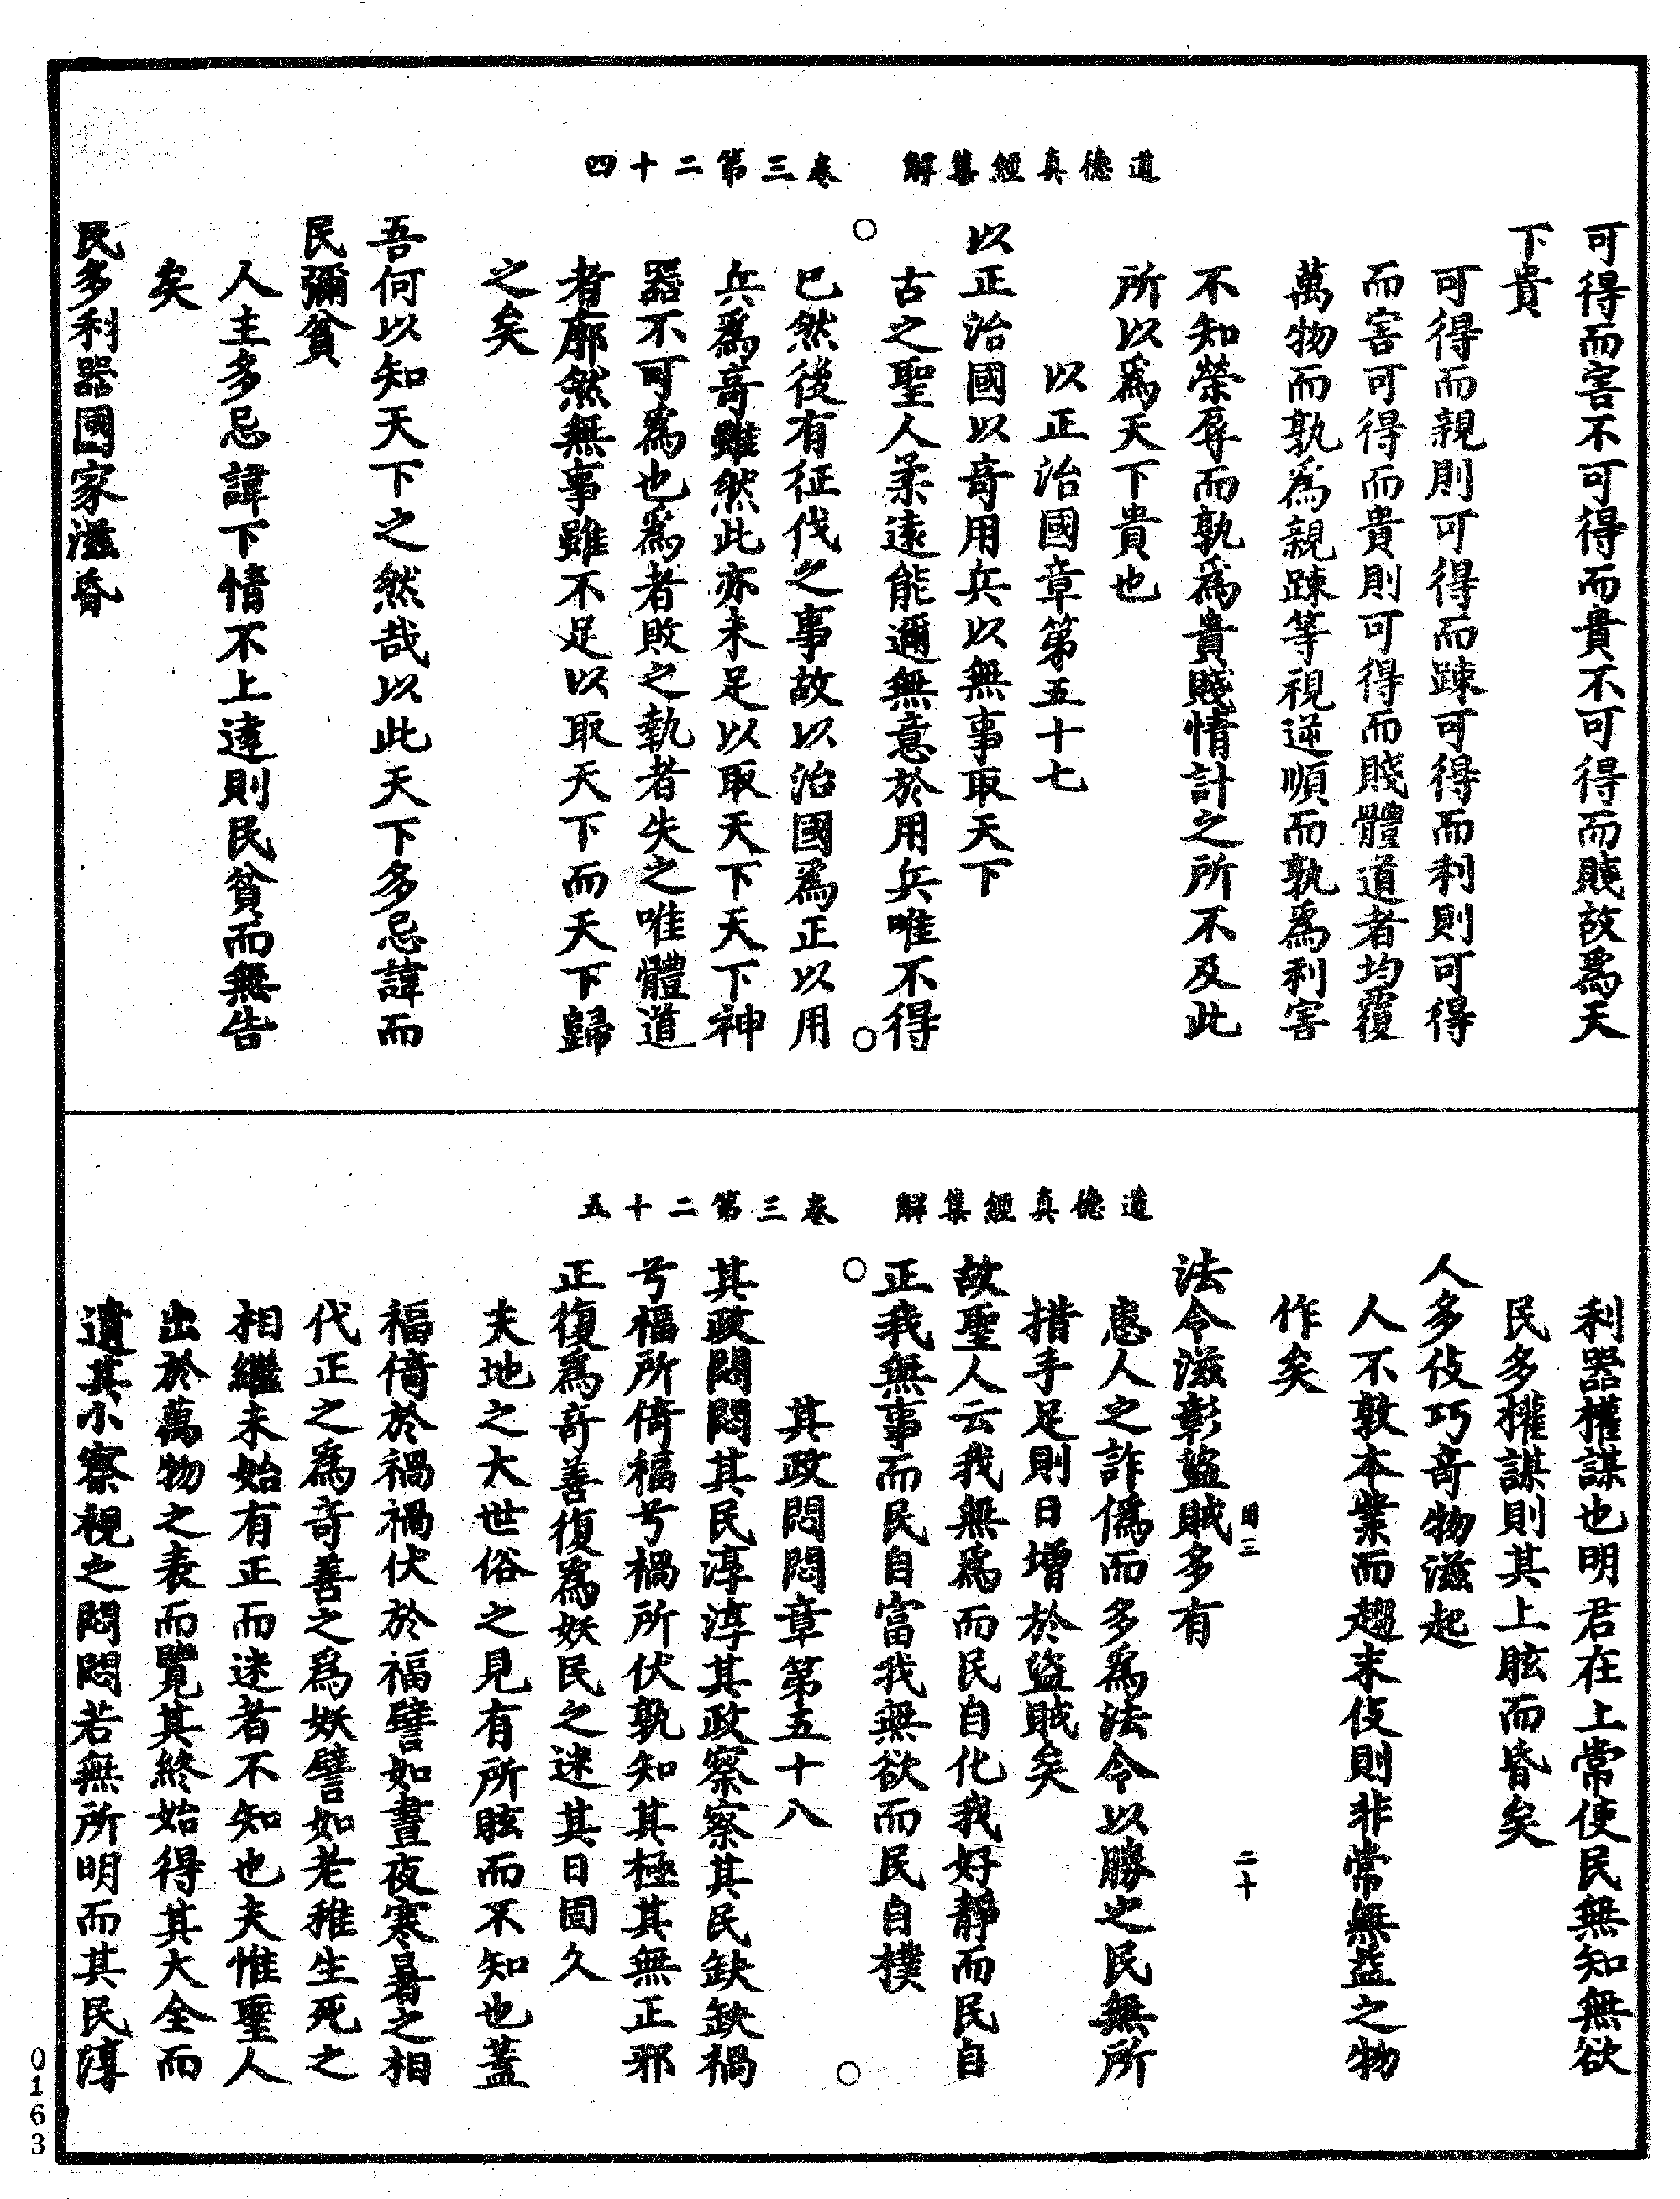 道德真經集解　卷三第二十四
可得而害不可得而貴不可得而賤故為天
下貴
可得而親則可得而踈可得而利則可得
而害可得而貴則可得而賤體道者均覆
萬物而孰為親踈等視逆順而孰為利害
不知榮辱而孰為貴賤情計之所不及此
所以為天下貴也
以正治國章第五十七
以正治國以奇用兵以無事取天下
古之聖人柔遠能邇無意於用兵唯不得
已然後有征伐之事故以治國為正以用
兵為奇雖然此亦未足以取天下天下神
器不可為也為者敗之執者失之唯體道
者廓然無事雖不足以取天下而天下歸
之矣
吾何以知天下之然哉以此天下多忌諱而
民彌貧
人主多忌諱下情不上達則民貧而無告
矣
民多利器國家滋昏
道德真經集解　卷三第二十五
利器權謀也明君在上常使民無知無欲
民多權謀則其上眩而昏矣
人多伎巧奇物滋起
人不敦本業而趨末伎則非常無益之物
作矣
法令滋彰盜賊多有
二十
患人之詐偽而多為法令以勝之民無所
措手足則日增於盜賊矣
故聖人云我無為而民自化我好靜而民自
正我無事而民自富我無欲而民自樸
其政悶悶章第五十八
其政悶悶其民淳淳其政察察其民缺缺禍
兮福所倚福兮禍所伏孰知其極其無正邪
正復為奇善復為妖民之迷其日固久
夫地之大世俗之見有所眩而不知也蓋
福倚於禍禍伏於福譬如晝夜寒暑之相
代正之為奇善之為妖譬如老稚生死之
相繼未始有正而迷者不知也夫惟聖人
出於萬物之表而覽其終始得其大全而
遺其小察視之悶悶若無所明而其民淳
0163